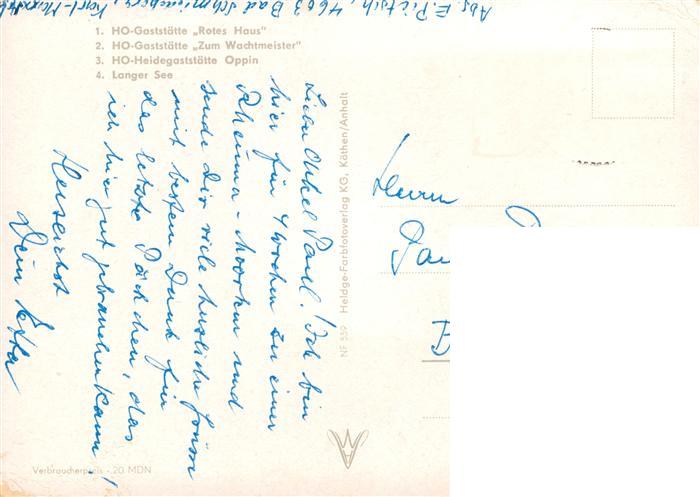 Abs. E. Pietsch, 4603 Bad Schmiedeberg, Karl-Marx-
1. HO-Gaststätte „Rotes Haus"
2. HO-Gaststätte „Zum Wachtmeister"
3. HO-Heidegaststätte Oppin
4. Langer See
Lieber Onkel Paul! Ich bin
hier für 4 Wochen zu einer
Rheuma-Moorkur und
sende Dir viele herzliche Grüsse
mit bestem Dank für
das letzte Päckchen, das
ich hier gut gebrauchen kann!
Herzlichst
Dein
NF 559 Heldge-Farbfotoverlag KG, Köthen/Anhalt
Herrn
Pau
B
Verbraucherpreis -.20 MDN